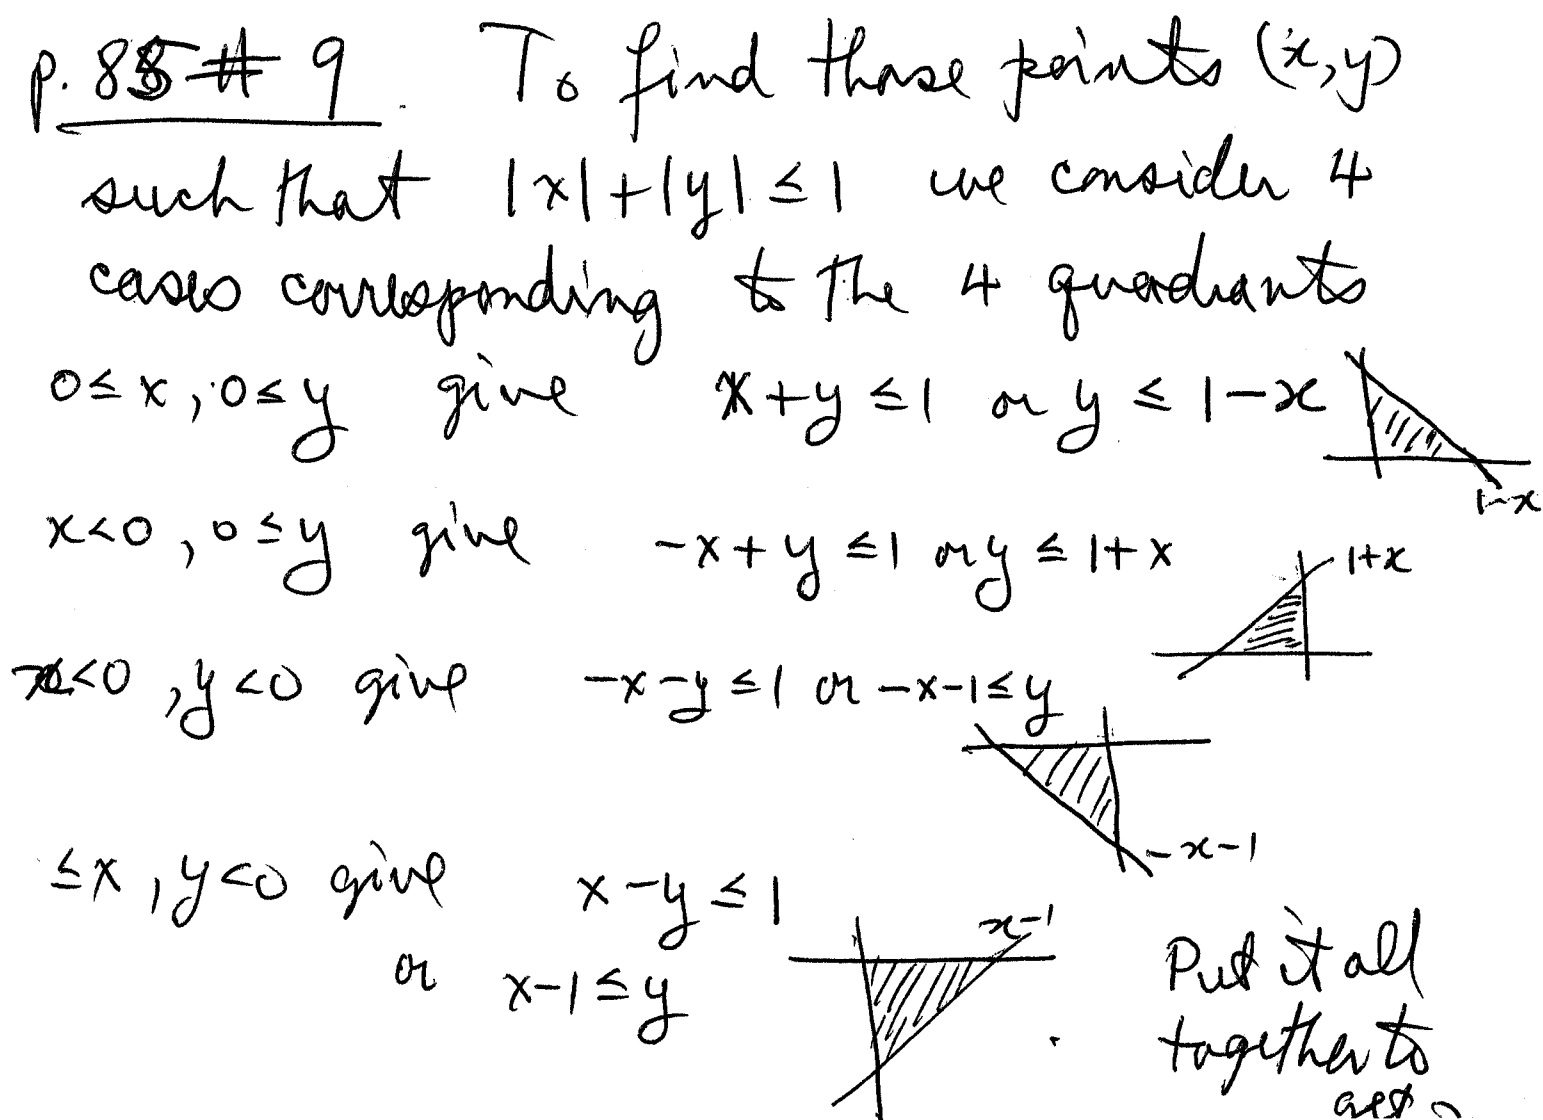 p. 85 # 9. To find those points (x,y)
such that |x|+|y| ≤ 1 we consider 4
cases corresponding to the 4 quadrants
0 ≤ x, 0 ≤ y give x+y ≤ 1 or y ≤ 1-x
1-x
x<0, 0 ≤ y give -x+y ≤ 1 or y ≤ 1+x
1+x
x<0, y<0 give -x-y ≤ 1 or -x-1 ≤ y
-x-1
≤x, y<0 give x-y ≤ 1
or x-1 ≤ y
x-1
Put it all
together to
get